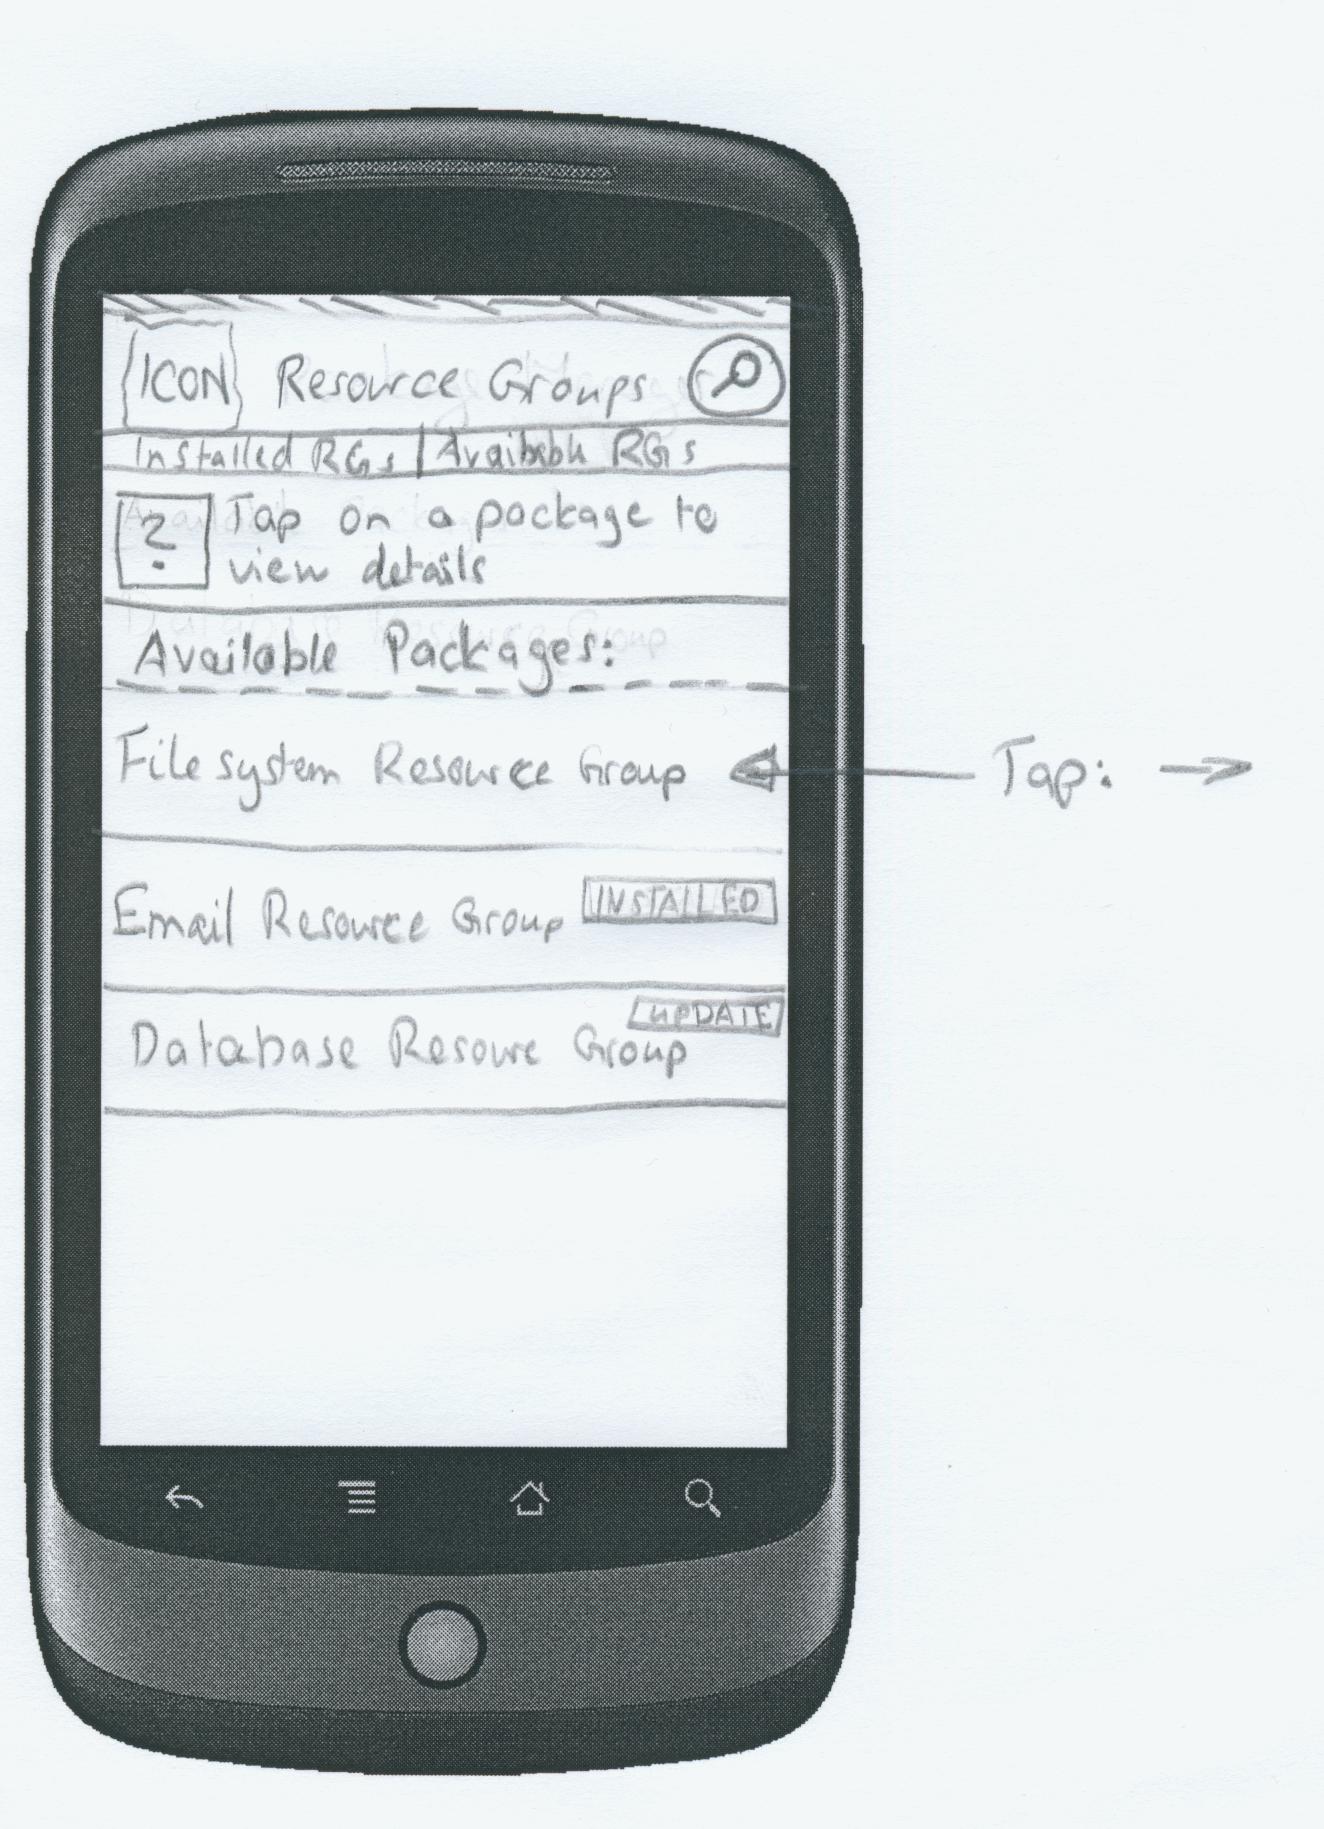 ICON Resource Groups
Installed RGs | Available RGs
? Tap on a package to
view details
Available Packages:
Filesystem Resource Group
Tap:
Email Resource Group INSTALLED
UPDATE
Database Resoure Group